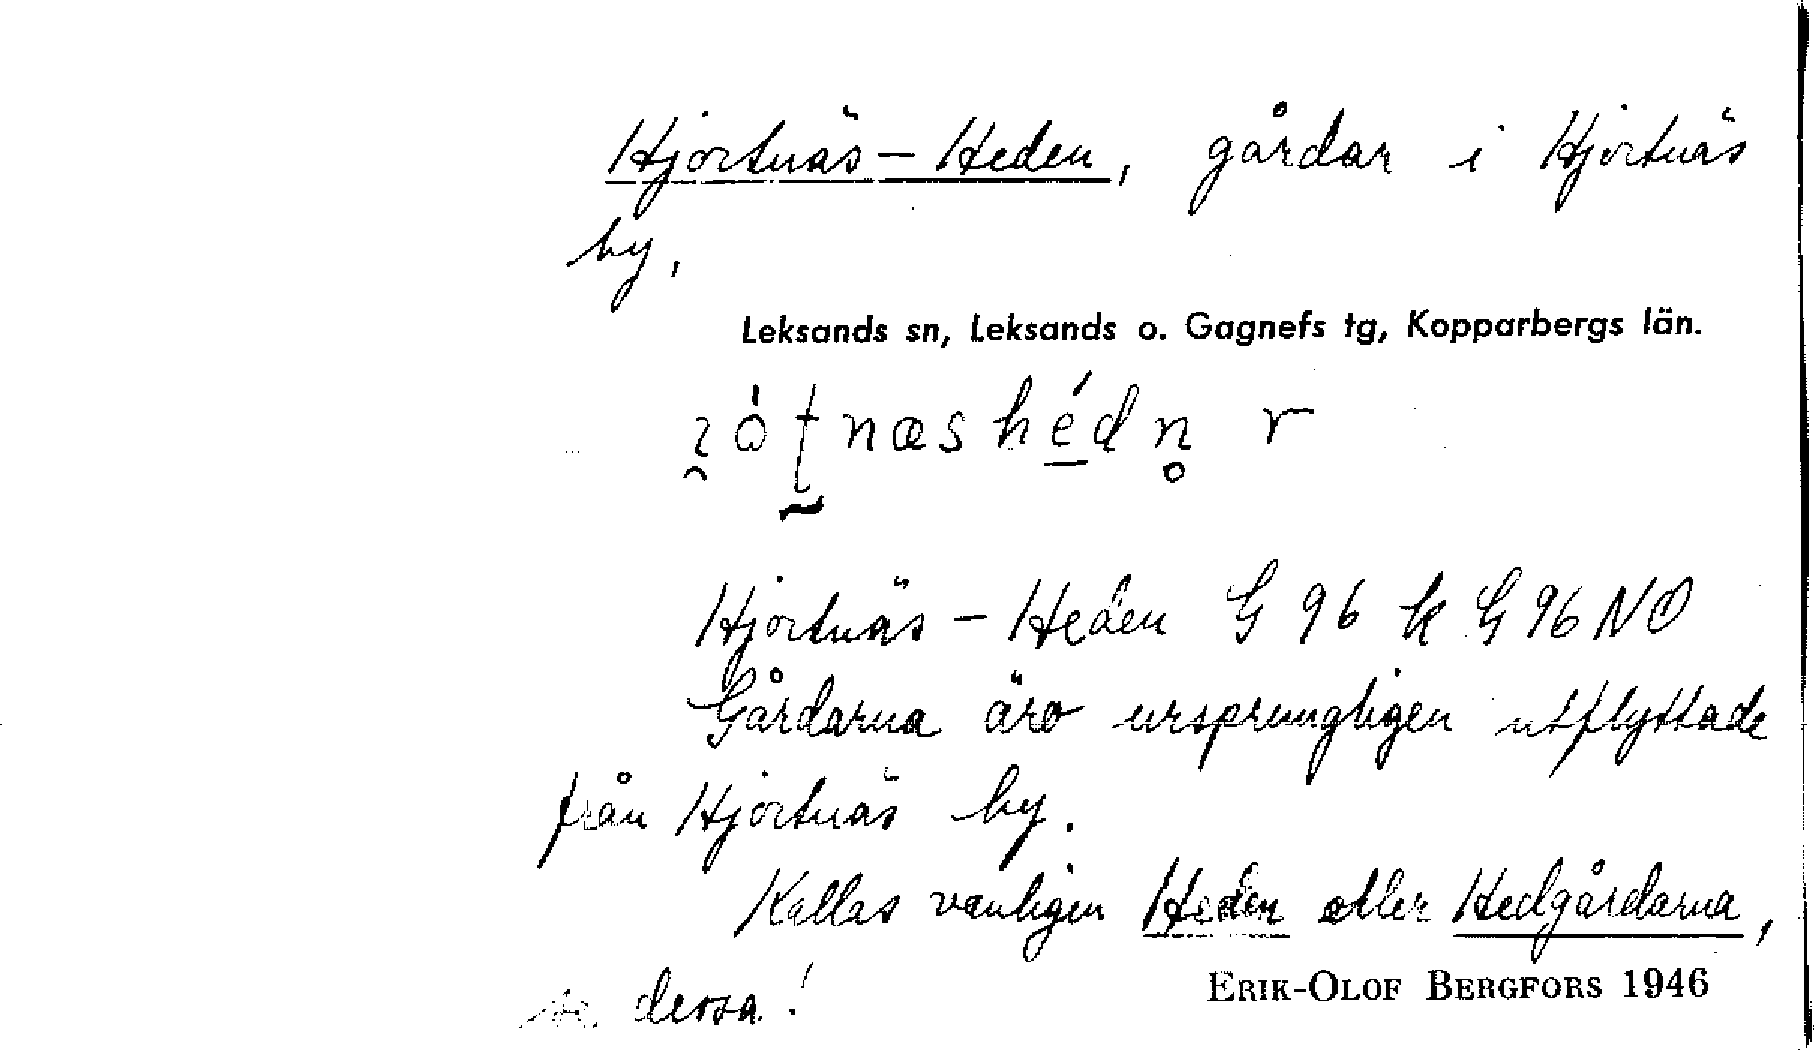 Hjortnäs – Heden, gårdar i Hjortnäs
by,
Leksands sn, Leksands o. Gagnefs tg, Kopparbergs län.
r
Hjortnäs – Heden G 96 k G 96 NO
Gårdarna äro ursprungligen utflyttade
från Hjortnäs by.
Kallas vanligen Heden eller Hedgårdarna,
se dessa!
ERIK-OLOF BERGFORS 1946